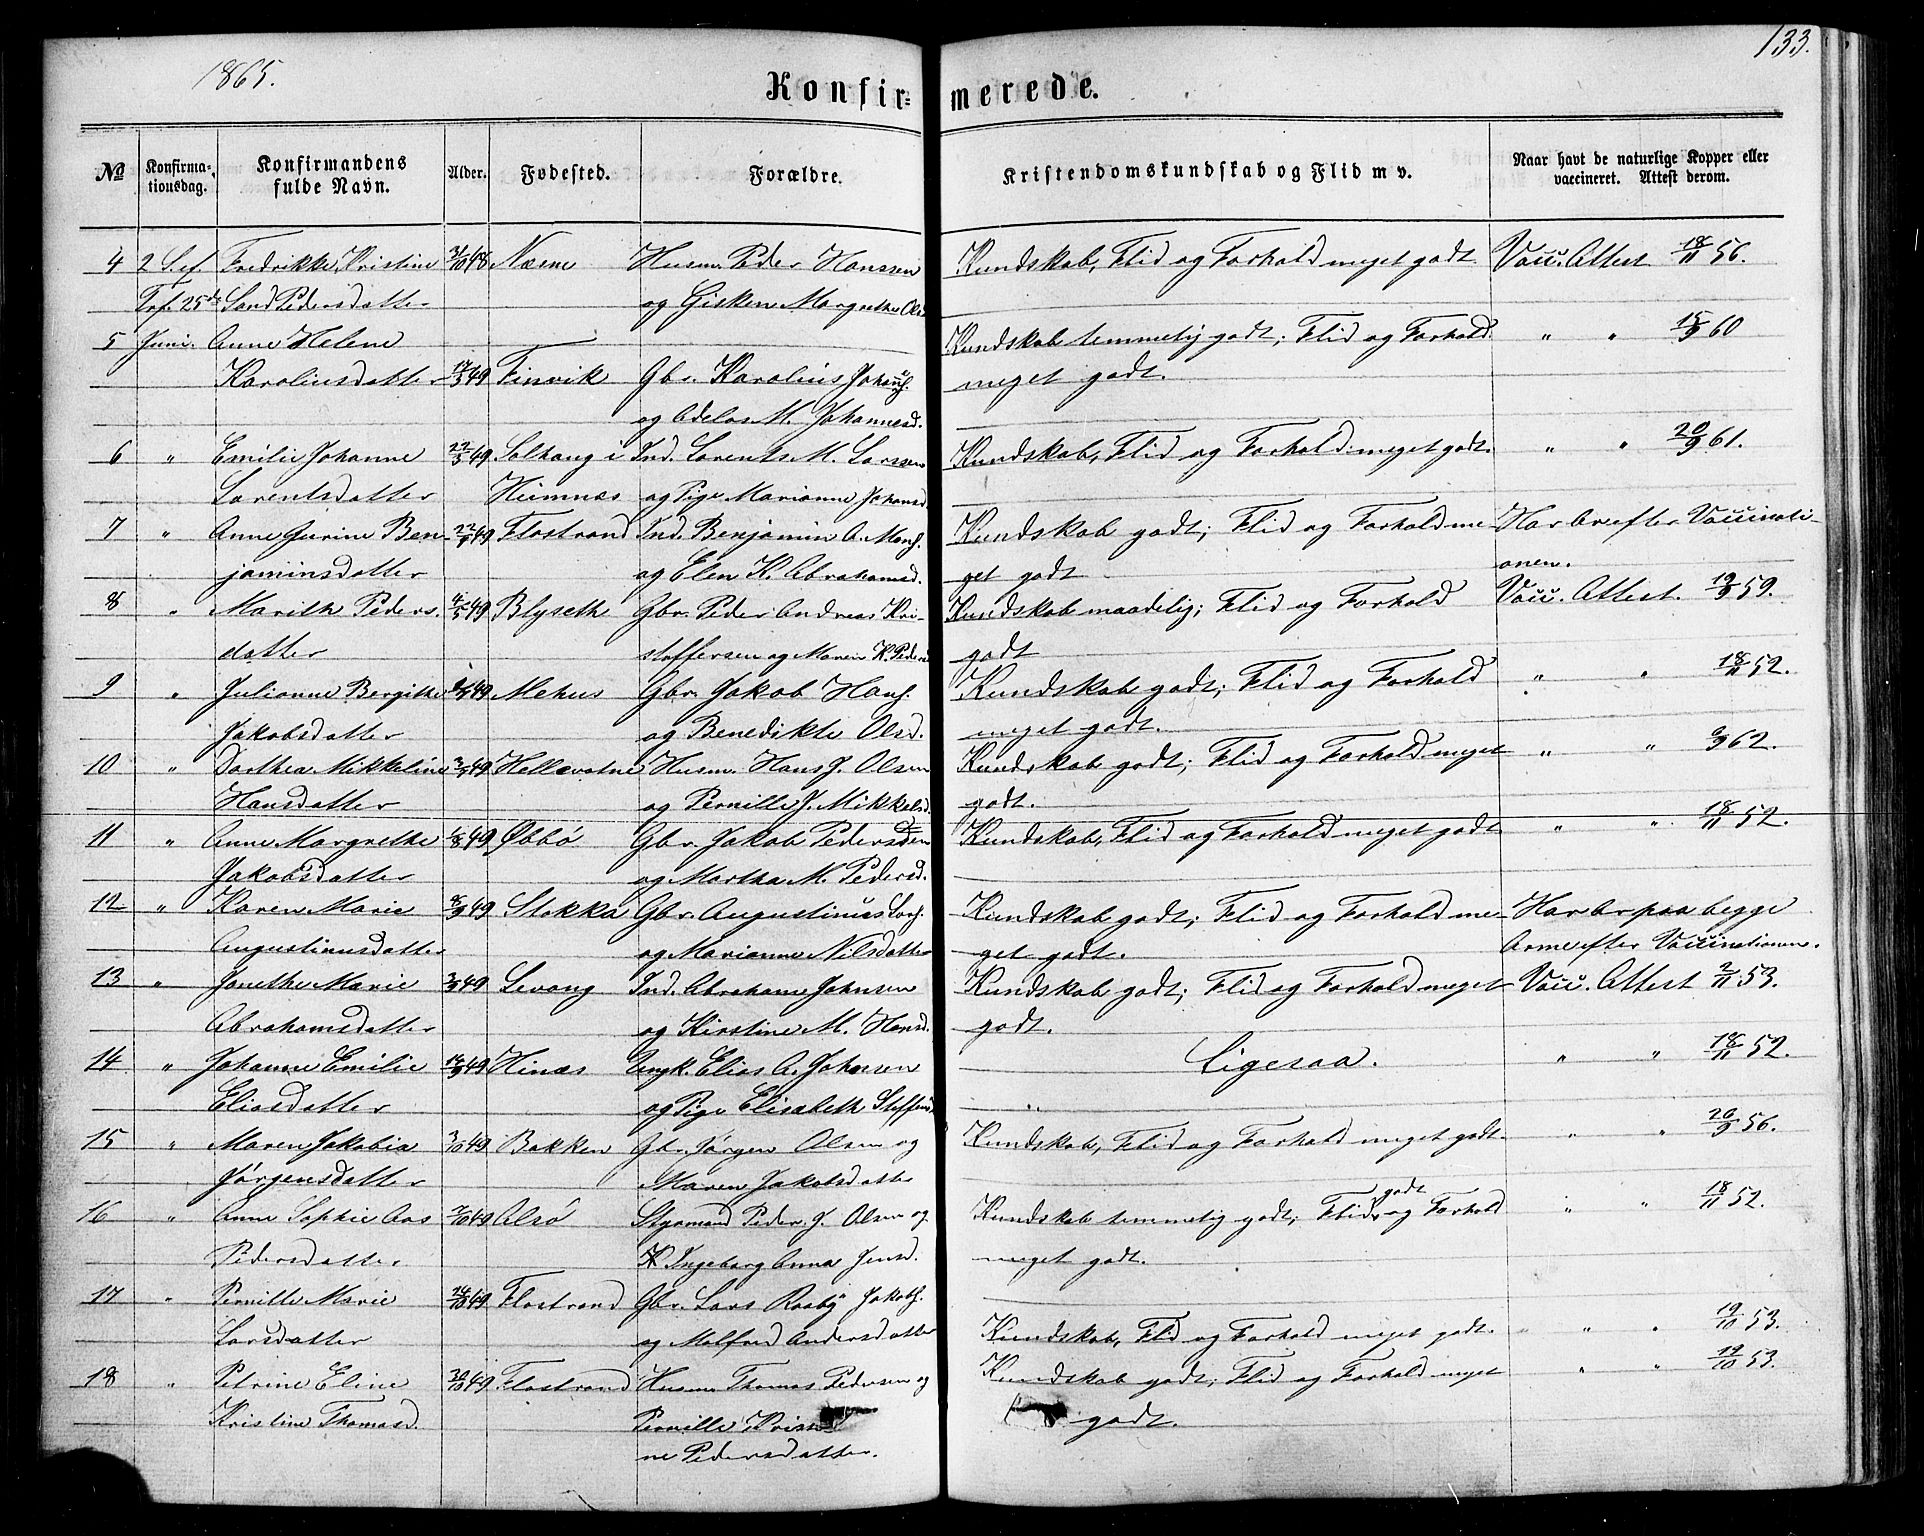 1865.
133.
Konfir= merede.
No
Konfirma=tionsdag.
Konfirmandens fulde Navn.
Alder.
Fødested.
Forældre.
Kristendomskundskab og Flid m v.
Naar havt de naturlige Kopper eller vaccineret. Attest derom.
4 2 S. ef. Fredrikke Kristine 48 Næsne Husm. Peder Hanssen Kundskab, Flid og Forhold meget godt Vacc. Attest 18/11 56.
Trf. 25de Sand Pedersdatter og Gisken Margrethe
5 Juni. Anne Helene Kundskab temmelig godt; Flid og Forhold " " 15/9 60
Karoliusdatter 17/3 49 Finvik Gbr. Karolius meget godt.
og M. Johannesd.
6 " Emilie Johanne 22/3 49 Solhaug i Ind. Lorents M. Larssen Kundskab, Flid og Forhold meget godt. " " 20/9 61.
Lorentsdatter Hemnæs og Pige Marianne Johansd.
7 " Anne Gurine Ben- 49 Flostrand Ind. Benjamin A. Kundskab godt; Flid og Forhold me- Har Ar efter Vaccinati-
jaminsdatter og Elen K. Abrahamsd. get godt onen.
8 " Marith Peders. 4/5 49 Blyseth Gbr. Peder Andreas Kri- Kundskab maadelig; Flid og Forhold Vacc. Attest. 19/9 59.
datter stoffersen og Maren K. godt
9 " Julianne Bergitte 49 Mehus Gbr. Jakob Kundskab godt; Flid og Forhold " " 18/11 52.
Jakobsdatter og Benedikte Olsd. meget godt.
10 " Dorthea Mikkeline 49 Hellevatne Husm. Hans J. Olsen Kundskab godt; Flid og Forhold meget " " 62.
Hansdatter og Pernille J. Mikkelsd. godt.
11 " Anne Margrethe 49 Øbbø Gbr. Jakob Pedersen Kundskab, Flid og Forhold meget godt " " 18/11 52.
Jakobsdatter og Martha M. Pedersd.
12 " Karen Marie 8/9 49 Stokka Gbr. Augustinus Kundskab godt; Flid og Forhold me- Har Ar paa begge
Augustinusdatter og Marianne Nilsdatter get godt. Arme efter Vaccinationen.
13 " Janethe Marie 3/9 49 Levang Ind. Abraham Johnsen Kundskab godt; Flid og Forhold meget Vacc. Attest 2/11 53.
Abrahamsdatter og Kirstine M. Hansd. godt.
14 " Johanne Emilie 14/9 49 Hinæs Ungk. Elias A. Johnsen Ligesaa. " " 18/11 52.
Eliasdatter og Pige Elisabeth
15 " Maren Jakobia 3/10 49 Bakken Gbr. Jørgen Olsen og Kundskab, Flid og Forhold meget godt. " " 20/9 56.
Jørgensdatter Maren Jakobsdatter
16 " Anne Sophie Aas 7/10 49 Alsø Styrmand Peder J. Olsen og Kundskab temmelig godt; Flid godt og Forhold " " 18/11 52.
Pedersdatter K. Ingeborg Anna Jensd. meget godt.
17 " Pernille Marie 14/10 49 Flostrand Gbr. Lars
Larsdatter og Malfred Andersdatter Kundskab, Flid og Forhold meget godt. " " 19/10 53.
18 " Petrine Eline 20/10 49 Flostrand Husm. Thomas Pedersen og Kundskab godt; Flid og Forhold meget " " 19/10 53.
Kristine Thomasd. Pernille godt.
ne Pedersdatter.